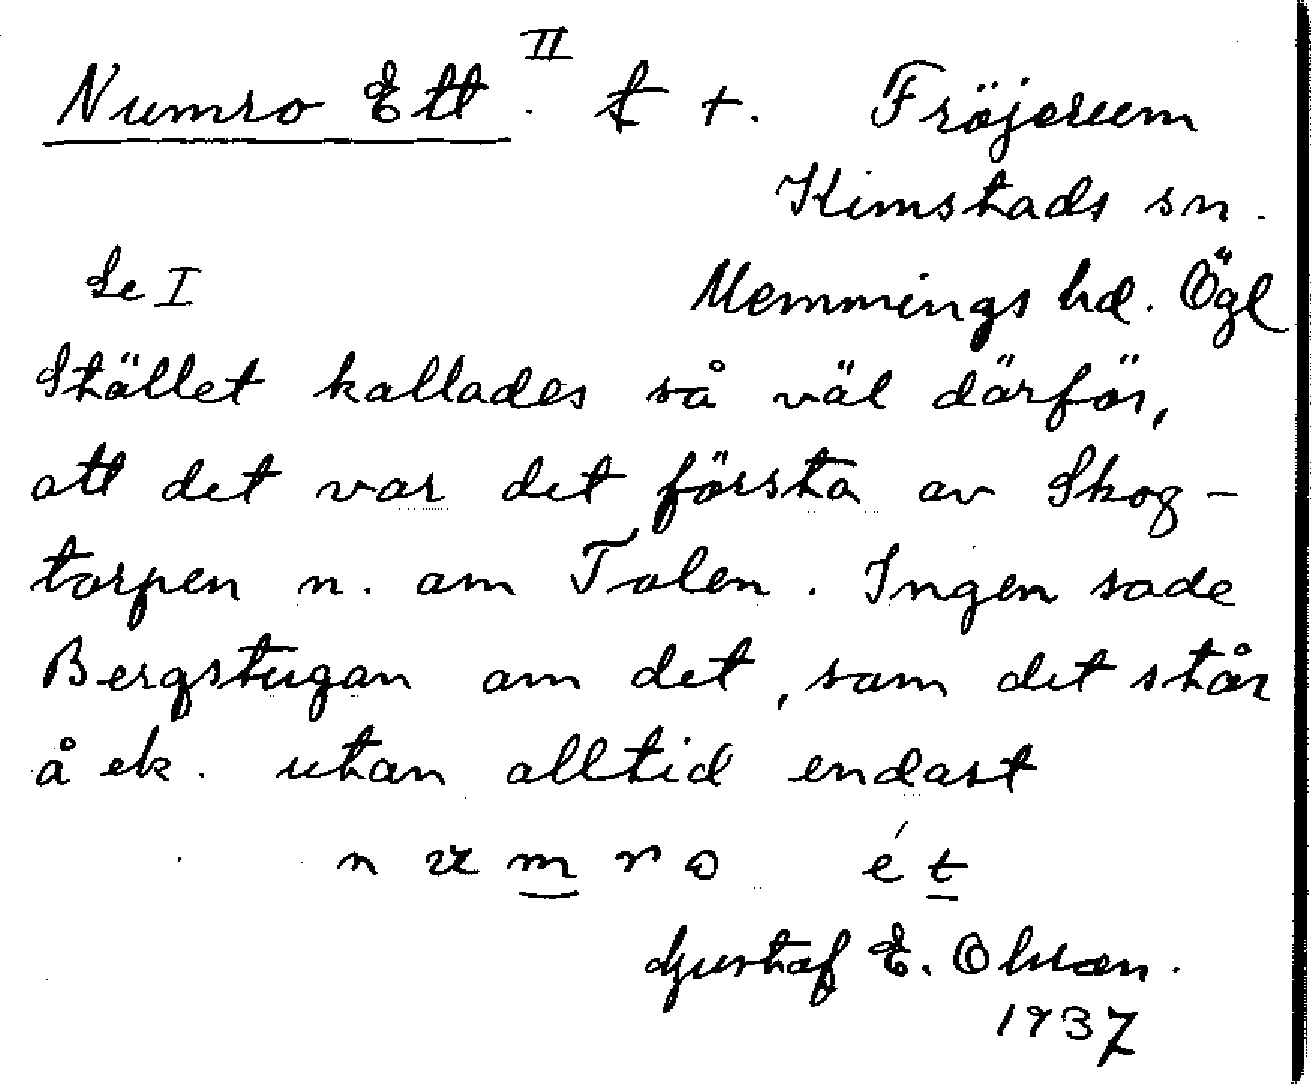 Numro Ett. II t +. Fröjerum
Kimstads sn.
Se I Memmings hd. Ögl
Stället kallades så väl därför,
att det var det första av Skog-
torpen n. om Tolen. Ingen sade
Bergstugan om det, som det står
å ek. utan alltid endast
numro ét
Gustaf E. Olsson.
1937